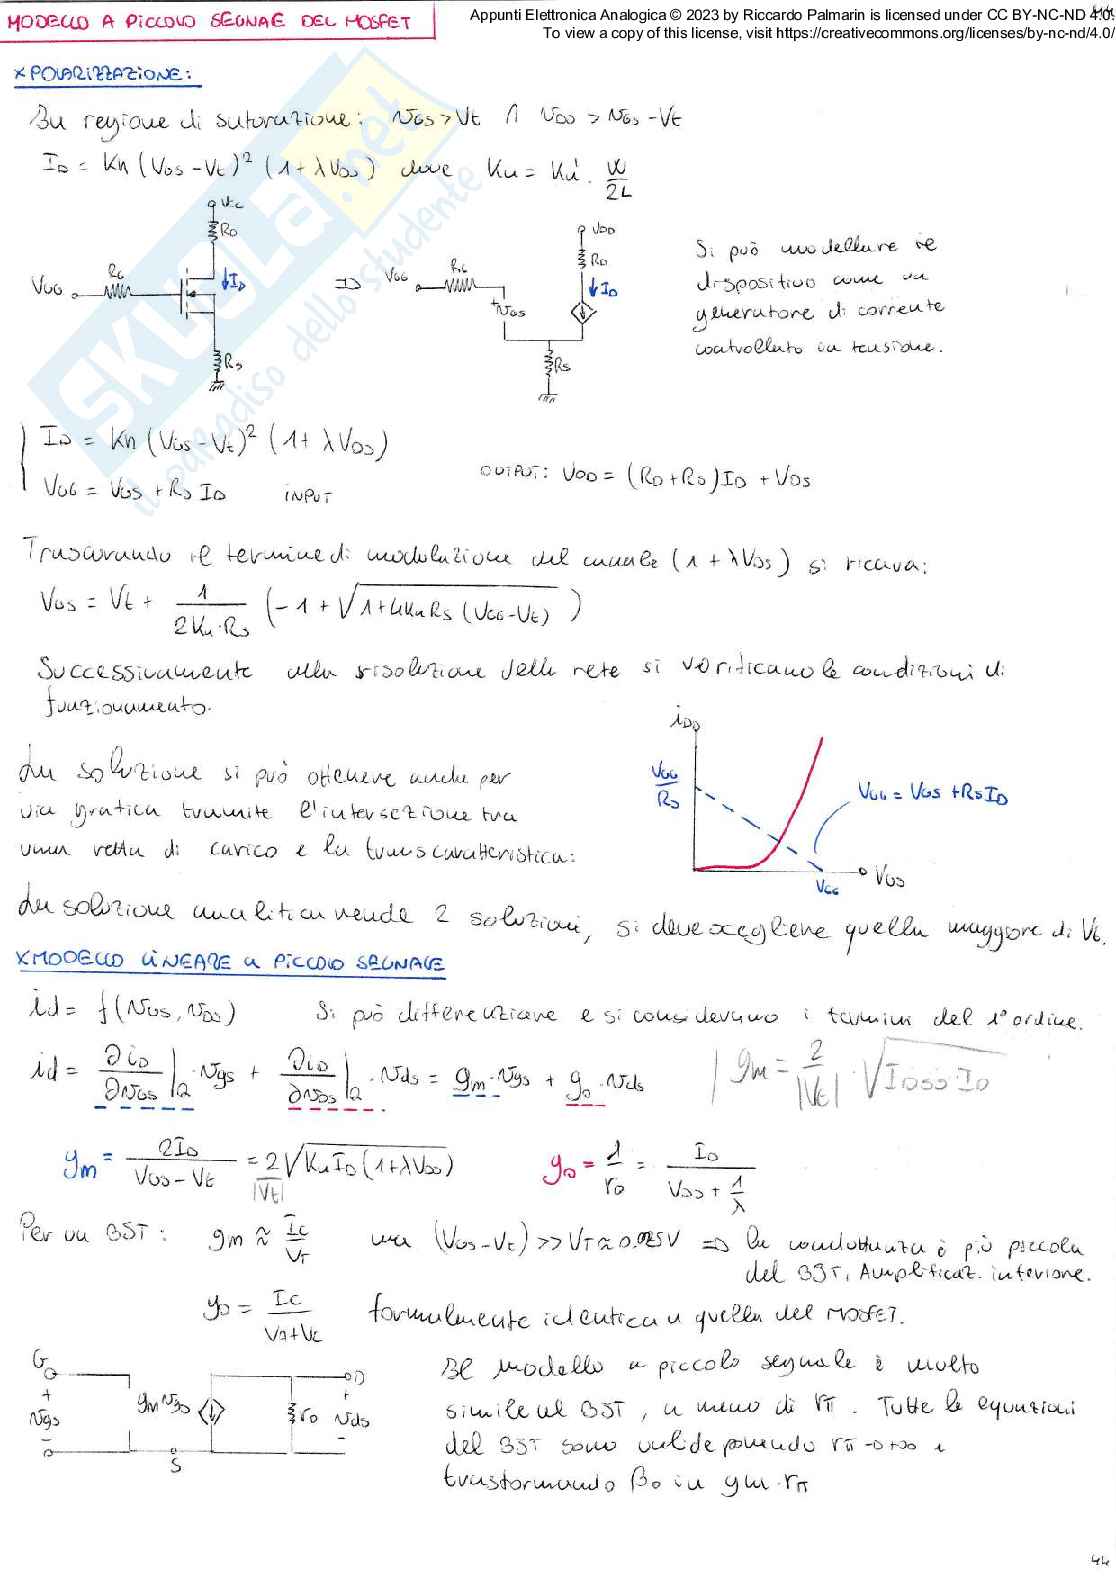 MODELLO A PICCOLO SEGNALE DEL MOSFET
Appunti Elettronica Analogica © 2023 by Riccardo Palmarin is licensed under CC BY-NC-ND 4.0.
To view a copy of this license, visit https://creativecommons.org/licenses/by-nc-nd/4.0/
× POLARIZZAZIONE:
In regione di saturazione: VGS > Vt ∧ VDS > VGS - Vt
ID = Kn (VGS - Vt)² (1 + λVDS) dove Kn = Kn' · W/2L
RD
RG
VGG
ID
RS
⇒
VGG
RG
+VGS
VDD
RD
ID
RS
Si può modellare il
dispositivo come un
generatore di corrente
controllato in tensione.
ID = Kn (VGS - Vt)² (1 + λVDS)
VGG = VGS + RS ID INPUT
OUTPUT: VDD = (RD + RS) ID + VDS
Trascurando il termine di modulazione del canale (1 + λVDS) si ricava:
VGS = Vt + 1/(2Kn·RS) (-1 + √(1 + 4KnRS (VGG - Vt)))
Successivamente alla risoluzione della rete si verificano le condizioni di
funzionamento.
La soluzione si può ottenere anche per
via grafica tramite l'intersezione tra
una retta di carico e la transcaratteristica:
VGG/RS
VGG = VGS + RS ID
VGG
VGS
La soluzione analitica rende 2 soluzioni, si deve scegliere quella maggiore di Vt.
× MODELLO LINEARE A PICCOLO SEGNALE
id = f(VGS, VDS) Si può differenziare e si considerano i termini del 1° ordine.
id = ∂iD/∂VGS |Q · Vgs + ∂iD/∂VDS |Q · Vds = gm · Vgs + go · Vds
gm = 2/|Vt| · √(IDSS·ID)
gm = 2ID/(VGS - Vt) = 2/|Vt| √(KnID (1 + λVDS))
go = 1/ro = ID/(VDS + 1/λ)
Per un BJT: gm ≈ IC/VT ma (VGS - Vt) >> VT ≈ 0.025V ⇒ la conduttanza è più piccola
del BJT. Amplificaz. inferiore.
go = IC/(VA + VC) formalmente identica a quella del MOSFET.
G
+
Vgs
-
gm Vgs
S
ro
D
+
Vds
-
Il modello a piccolo segnale è molto
simile al BJT, a meno di rπ. Tutte le equazioni
del BJT sono valide ponendo rπ → +∞ e
trasformando β0 in gm·rπ
44